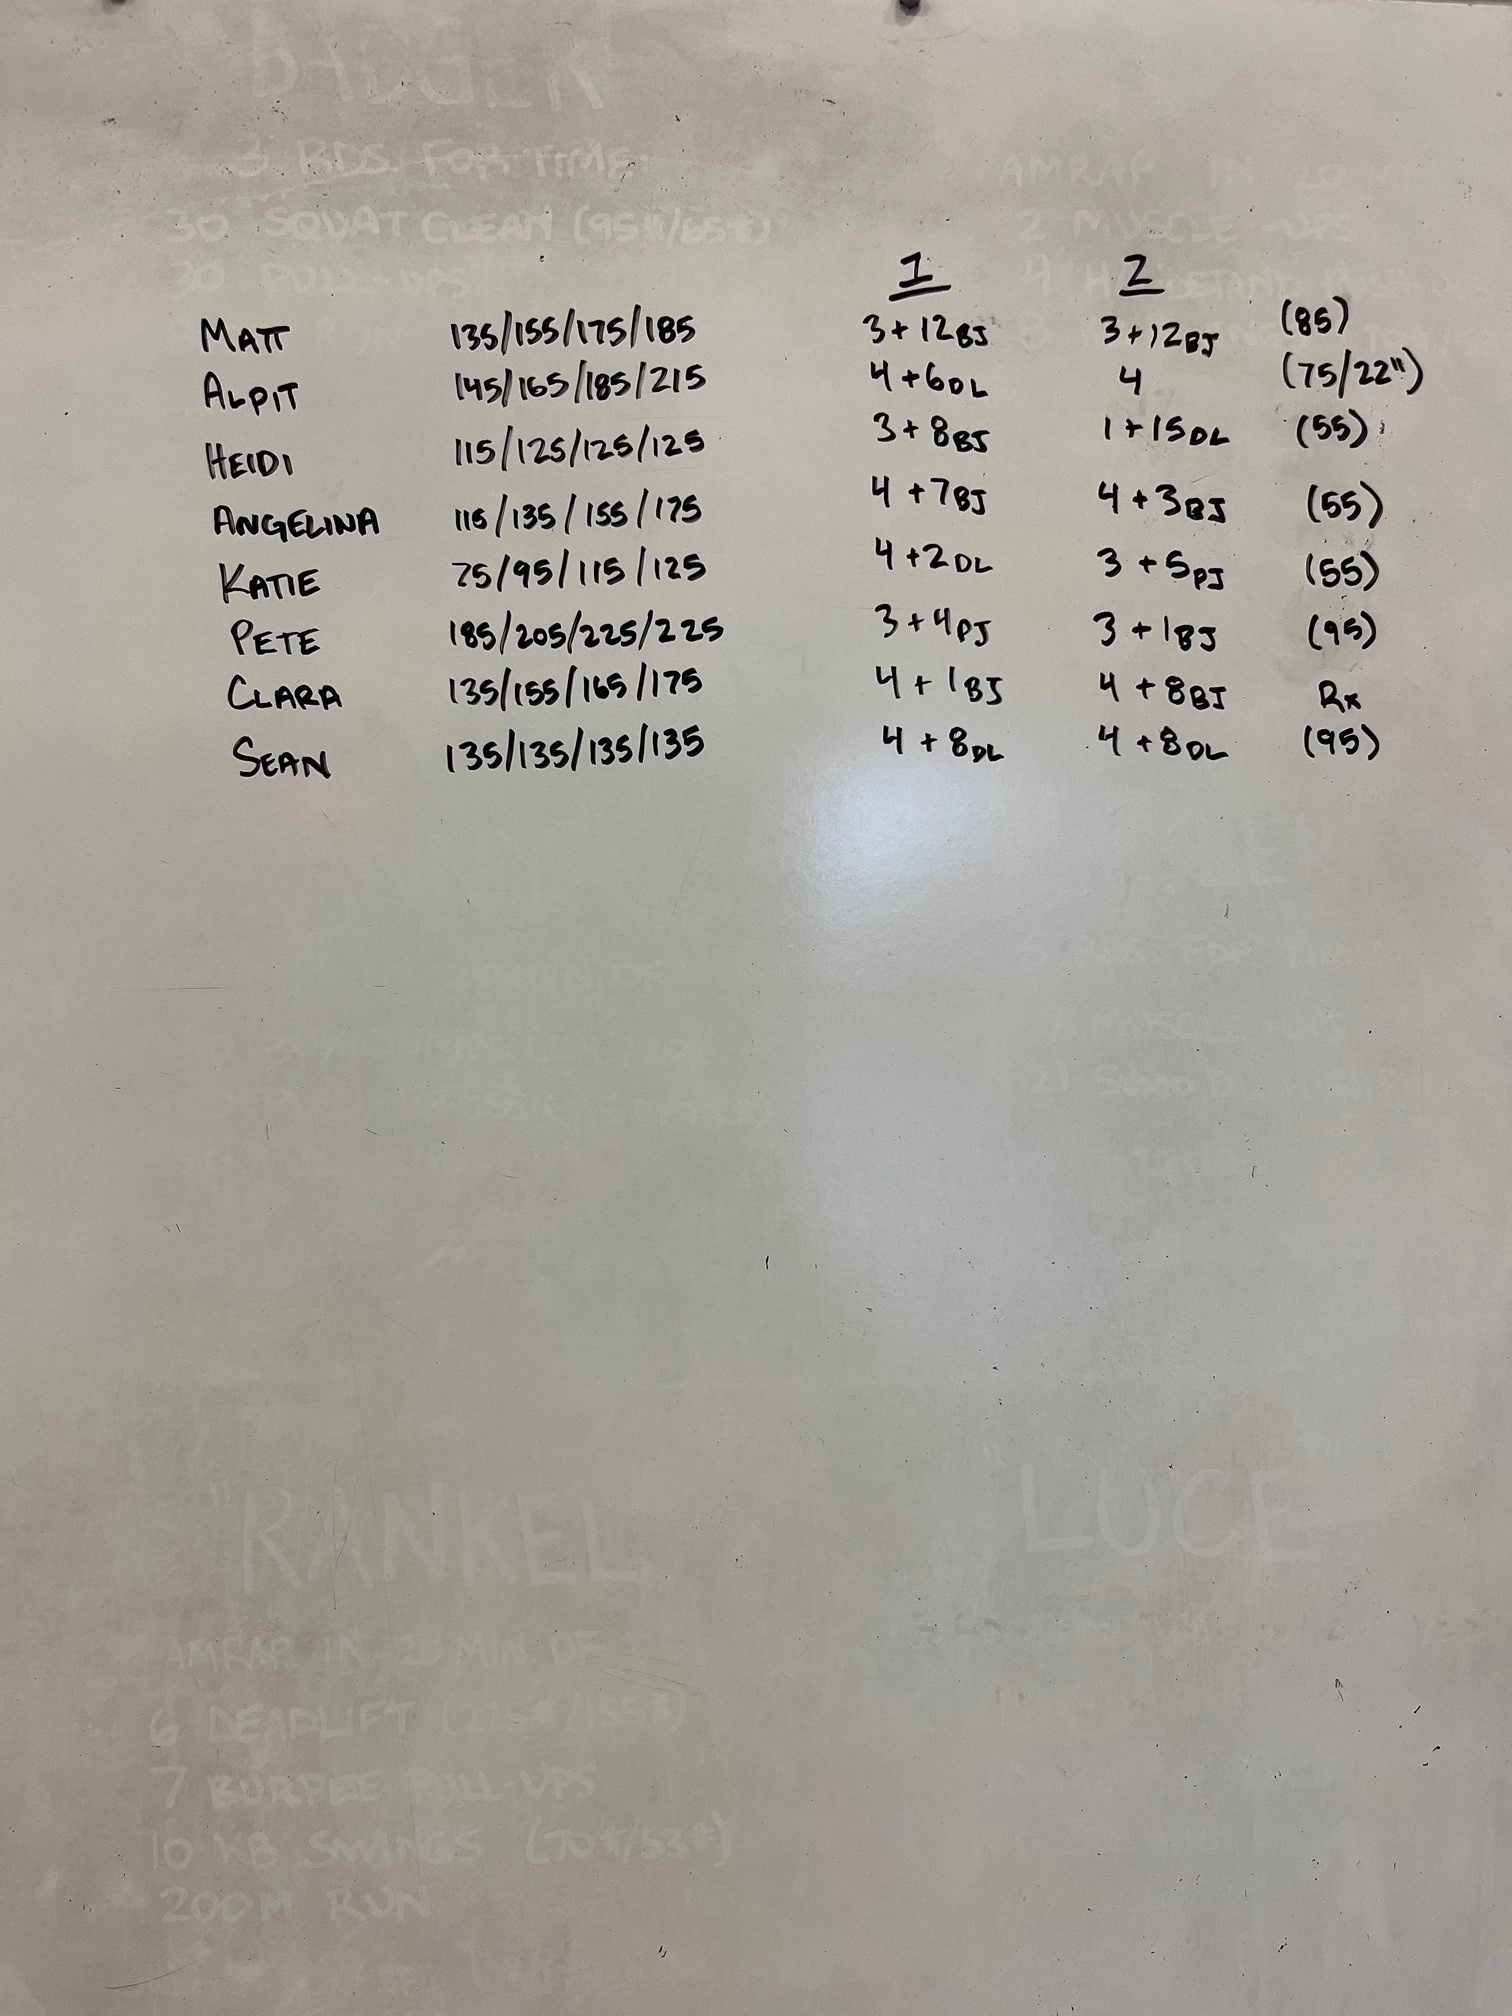 BADGER
3 RDS. FOR TIME
AMRAP IN 20
30 SQUAT CLEAN (95#/65#)
2 MUSCLE-UPS
30 PULL-UPS
1 2
MATT 135/155/175/185 3+12BJ 3+12BJ (85)
ALPIT 145/165/185/215 4+6DL 4 (75/22")
HEIDI 115/125/125/125 3+8BJ 1+15DL (55)
ANGELINA 115/135/155/175 4+7BJ 4+3BJ (55)
KATIE 75/95/115/125 4+2DL 3+5PJ (55)
PETE 185/205/225/225 3+4PJ 3+1BJ (95)
CLARA 135/155/165/175 4+1BJ 4+8BJ Rx
SEAN 135/135/135/135 4+8DL 4+8DL (95)
"RANKEL" "LUCE
AMRAP IN 20 MIN. OF
6 DEADLIFT (225#/155#)
7 BURPEE PULL-UPS
10 KB SWINGS (70#/53#)
200M RUN